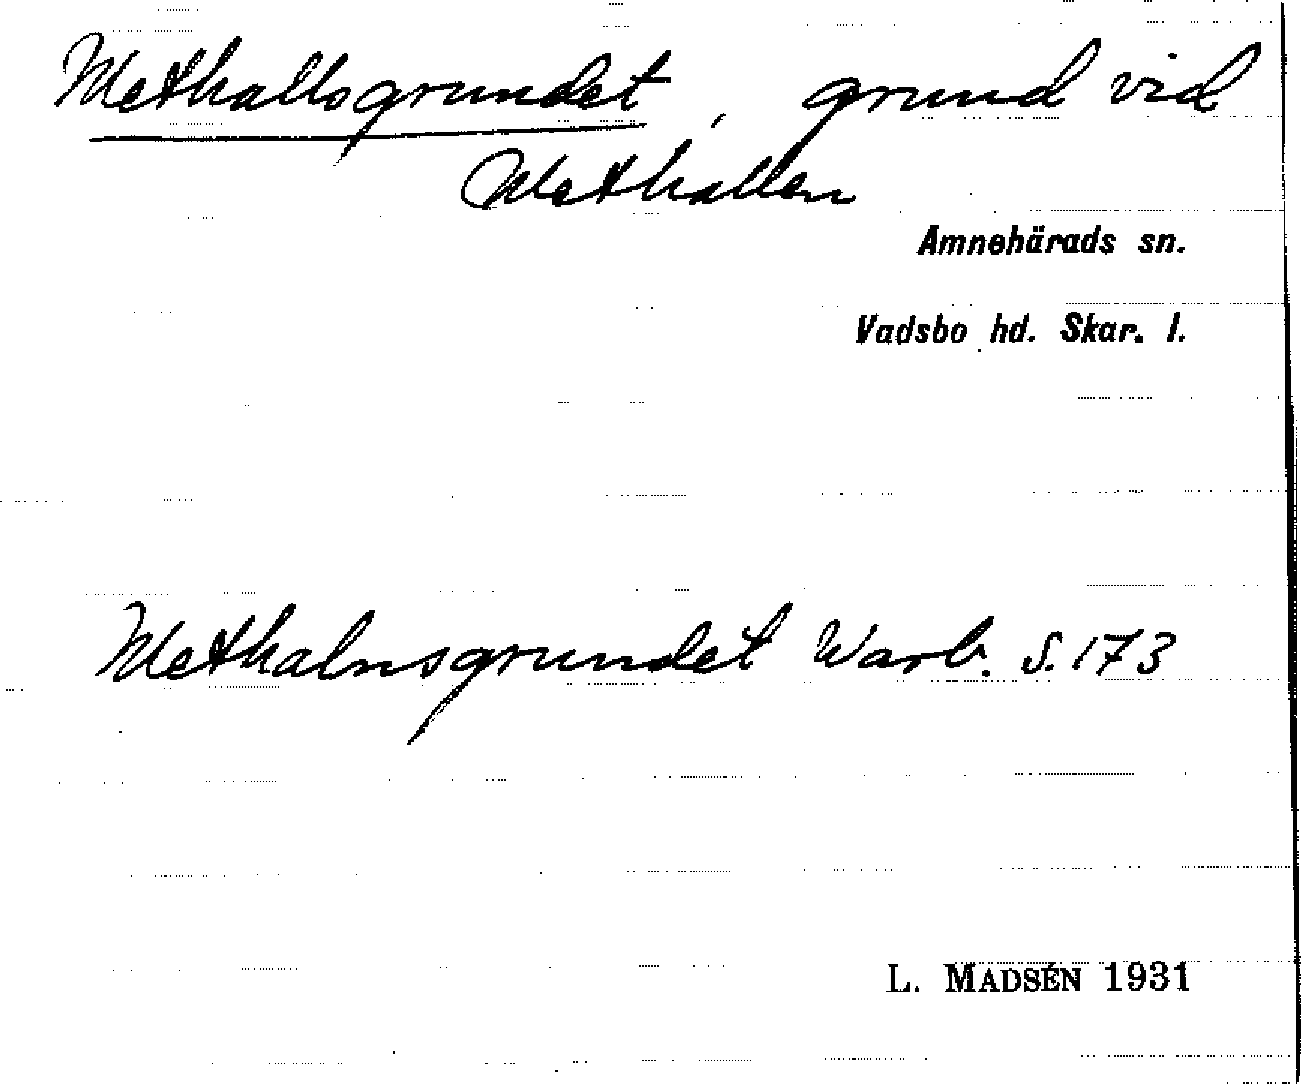 Methallsgrundet, grund vid
Methallen
Amnehärads sn.
Vadsbo hd. Skar. l.
Methalnsgrundet Warb. S. 173
L. MADSÉN 1931